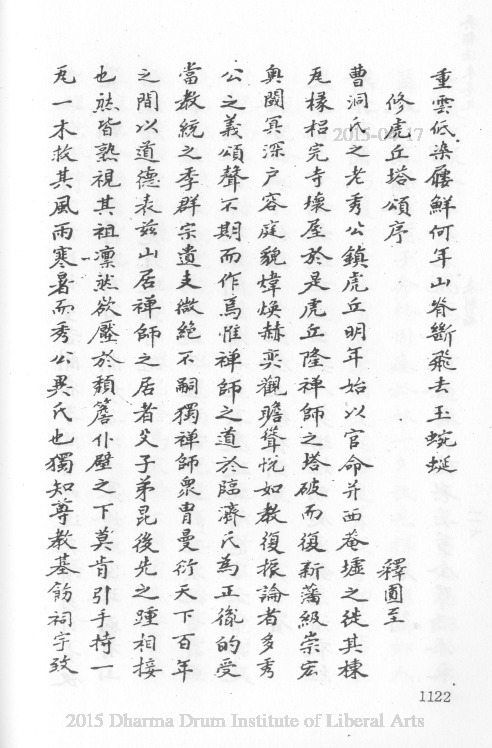 重雲低染屨鮮何年山脊斷飛去玉蜿蜒
修虎丘塔頌序
釋圓至
曹洞氏之老秀公鎮虎丘明年始以官命并西菴墟之徙其棟
瓦椽梠完寺壞屋於是虎丘隆禪師之塔破而復新藩級崇宏
奥閟冥深户容庭貌煒煥赫奕觀瞻聳悦如教復振論者多秀
公之義頌聲不期而作焉惟禪師之道於臨濟氏為正胤的受
當教統之季群宗遺支微絶不嗣獨禪師衆胄曼衍天下百年
之間以道德表兹山居禪師之居者父子弟昆後先之踵相接
也然皆熟視其祖凛然欲壓於頽簷仆壁之下莫肯引手持一
瓦一木救其風雨寒暑而秀公異氏也獨知尊教基飭祠宇致
1122
2015 Dharma Drum Institute of Liberal Arts